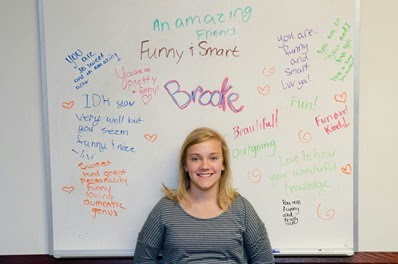 An amazing
Friend
Funny & Smart
Brooke
You are
so sweet
and an amazing
You're
pretty
& funny!
IDK you
very well but
you seem
funny & nice
Sweet
kind great
personality
funny
loving
authentic
genius
you are
funny
and
Smart
Luv ya!
Fun!
Beautiful!
outgoing
Funny
Kind
Love to hear
your wonderful
knowledge
You are
funny
and
really